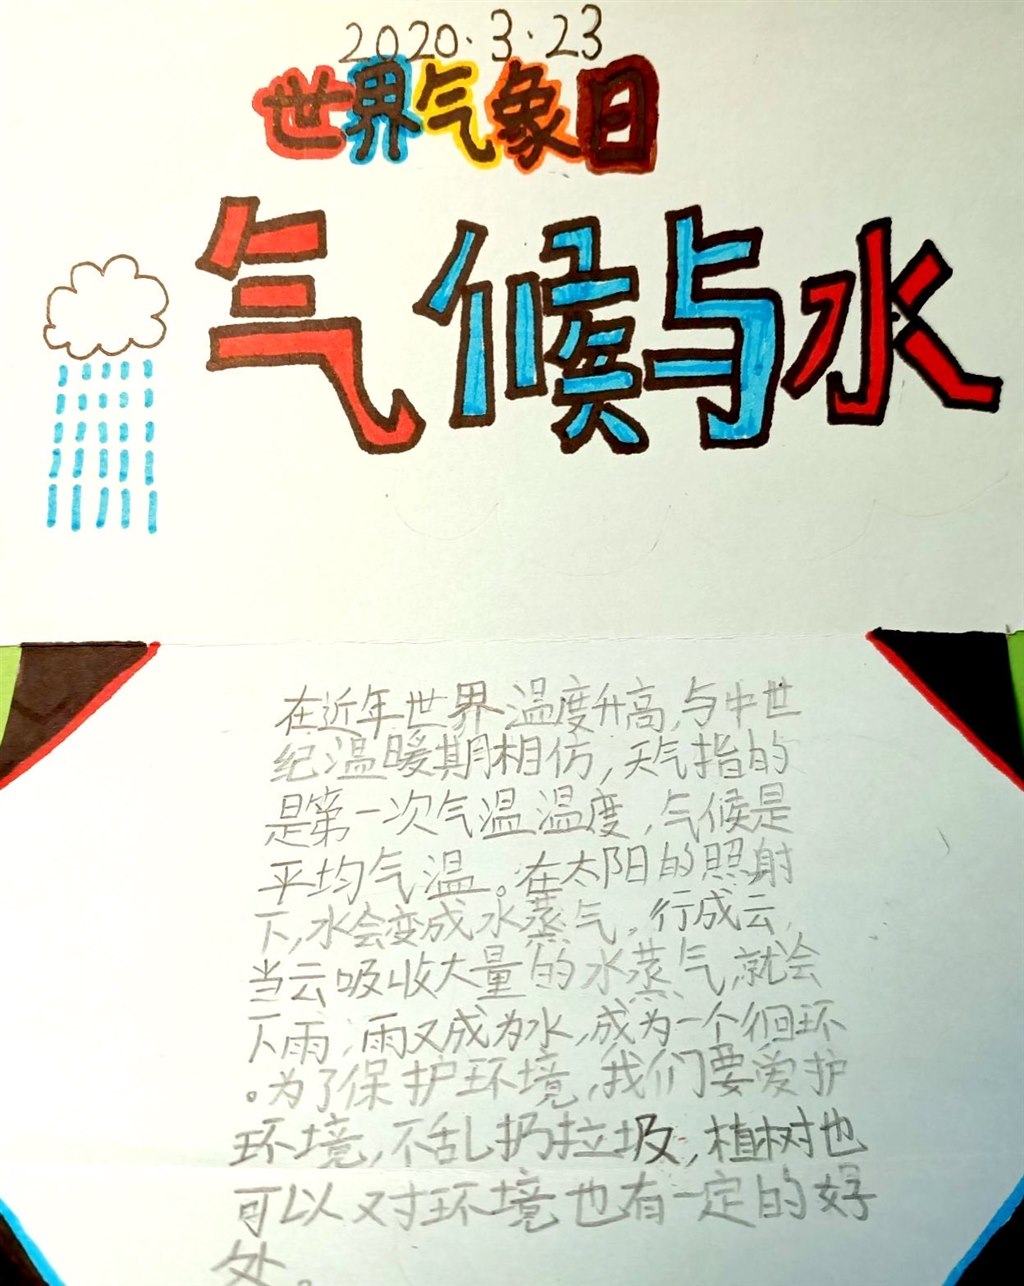 2020.3.23
世界气象日
气候与水
在近年世界温度升高,与中世
纪温暖期相仿,天气指的
是第一次气温温度,气候是
平均气温。在太阳的照射
下,水会变成水蒸气,行成云,
当云吸收大量的水蒸气,就会
下雨,雨又成为水,成为一个徊环
。为了保护环境,我们要爱护
环境,不乱扔垃圾,植树也
可以对环境也有一定的好
处。